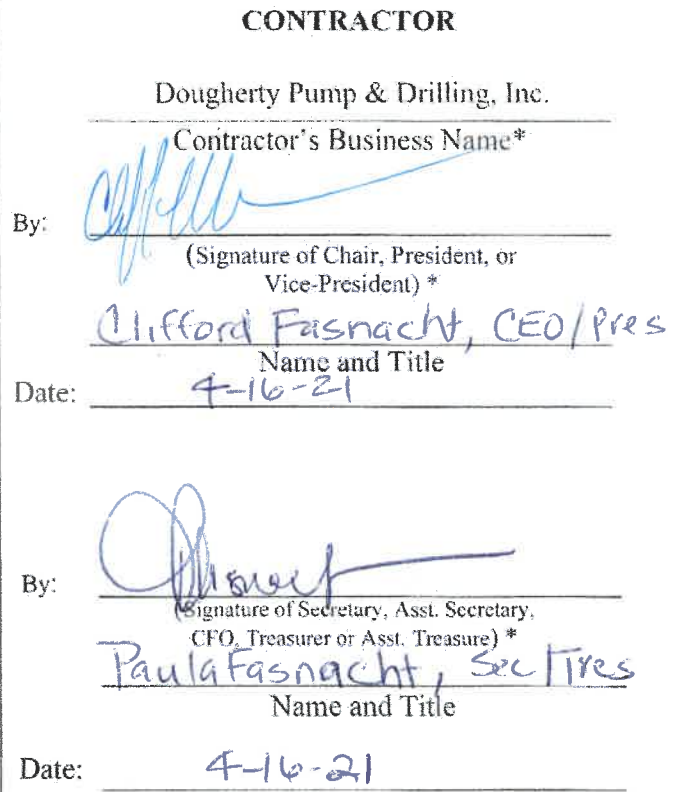 CONTRACTOR
Dougherty Pump & Drilling, Inc.
Contractor's Business Name*
By:
(Signature of Chair, President, or
Vice-President) *
Clifford Fasnacht, CEO/Pres
Name and Title
Date: 4-16-21
By:
(Signature of Secretary, Asst. Secretary,
CFO, Treasurer or Asst. Treasure) *
Paula Fasnacht, Sec/Tres
Name and Title
Date: 4-16-21